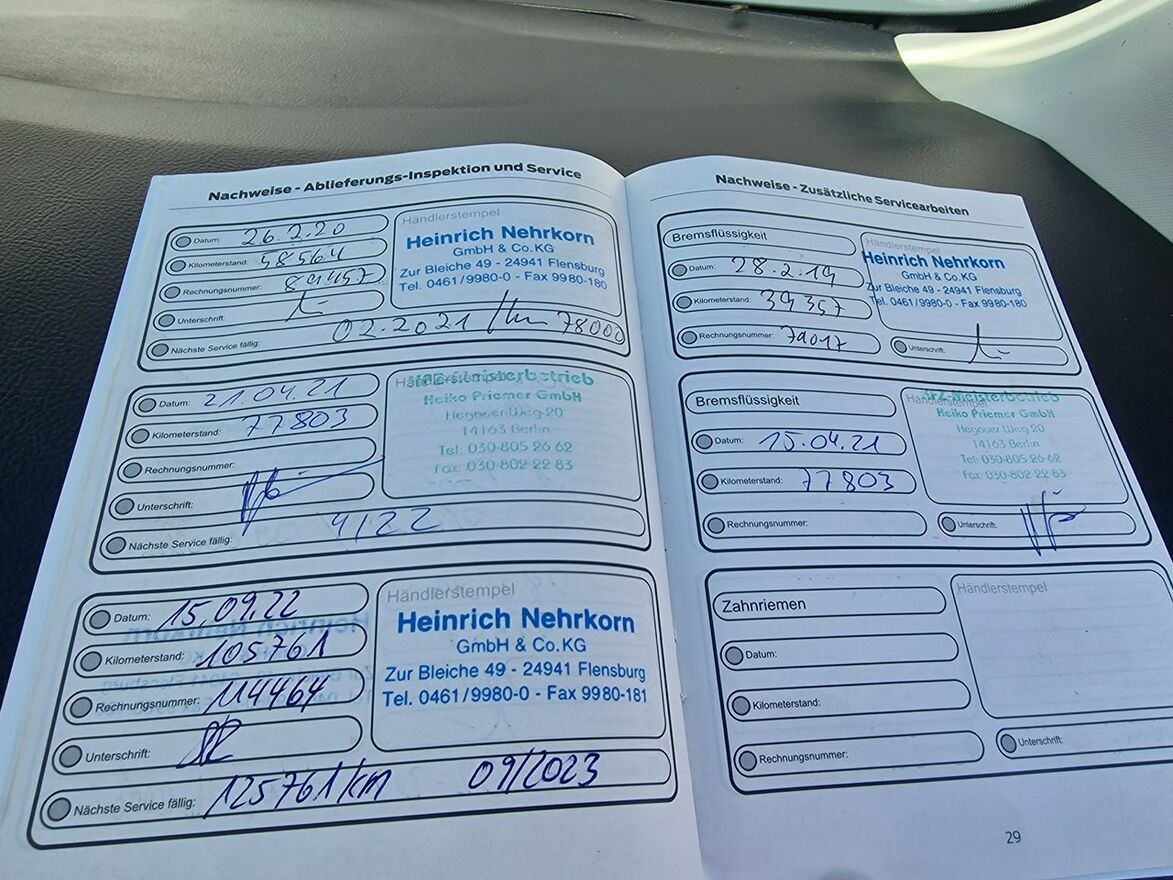 Nachweise - Ablieferungs-Inspektion und Service
Datum: 26.2.20
Kilometerstand: 58564
Rechnungsnummer: 89457
Unterschrift:
Nächste Service fällig: 02.2021 / km 78000
Händlerstempel
Heinrich Nehrkorn
GmbH & Co. KG
Zur Bleiche 49 - 24941 Flensburg
Tel. 0461/9980-0 - Fax 9980-180
Datum: 21.04.21
Kilometerstand: 77803
Rechnungsnummer:
Unterschrift:
Nächste Service fällig: 4/22
Händlerstempel
KFZ-Meisterbetrieb
Heiko Priemer GmbH
Hegauer Weg 20
14163 Berlin
Tel: 030-805 26 62
Fax: 030-802 22 83
Datum: 15.09.22
Kilometerstand: 105761
Rechnungsnummer: 114464
Unterschrift:
Nächste Service fällig: 125761 km 09/2023
Händlerstempel
Heinrich Nehrkorn
GmbH & Co. KG
Zur Bleiche 49 - 24941 Flensburg
Tel. 0461/9980-0 - Fax 9980-181
Nachweise - Zusätzliche Servicearbeiten
Bremsflüssigkeit
Datum: 28.2.19
Kilometerstand: 39357
Rechnungsnummer: 79017
Händlerstempel
Heinrich Nehrkorn
GmbH & Co. KG
Zur Bleiche 49 - 24941 Flensburg
Tel. 0461/9980-0 - Fax 9980-180
Unterschrift:
Bremsflüssigkeit
Datum: 15.04.21
Kilometerstand: 77803
Rechnungsnummer:
Händlerstempel
KFZ-Meisterbetrieb
Heiko Priemer GmbH
Hegauer Weg 20
14163 Berlin
Tel: 030-805 26 62
Fax: 030-802 22 83
Unterschrift:
Zahnriemen
Datum:
Kilometerstand:
Rechnungsnummer:
Händlerstempel
Unterschrift:
29